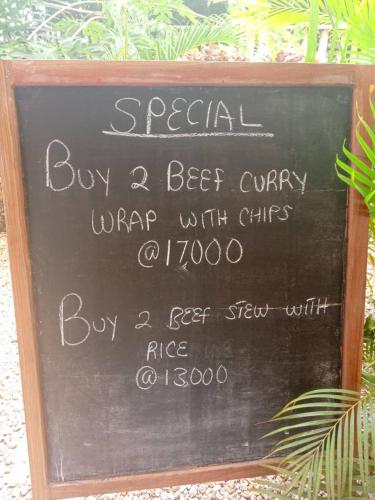 SPECIAL
BUY 2 BEEF CURRY
WRAP WITH CHIPS
@17,000
BUY 2 BEEF STEW WITH
RICE
@13,000